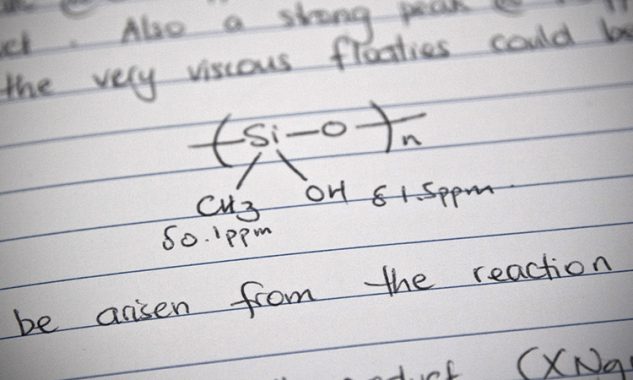 Also a strong peak @
the very viscous floaties could be
( Si — O )n
CH3 OH δ 1.5ppm
δ 0.1ppm
be arisen from the reaction
(XNa